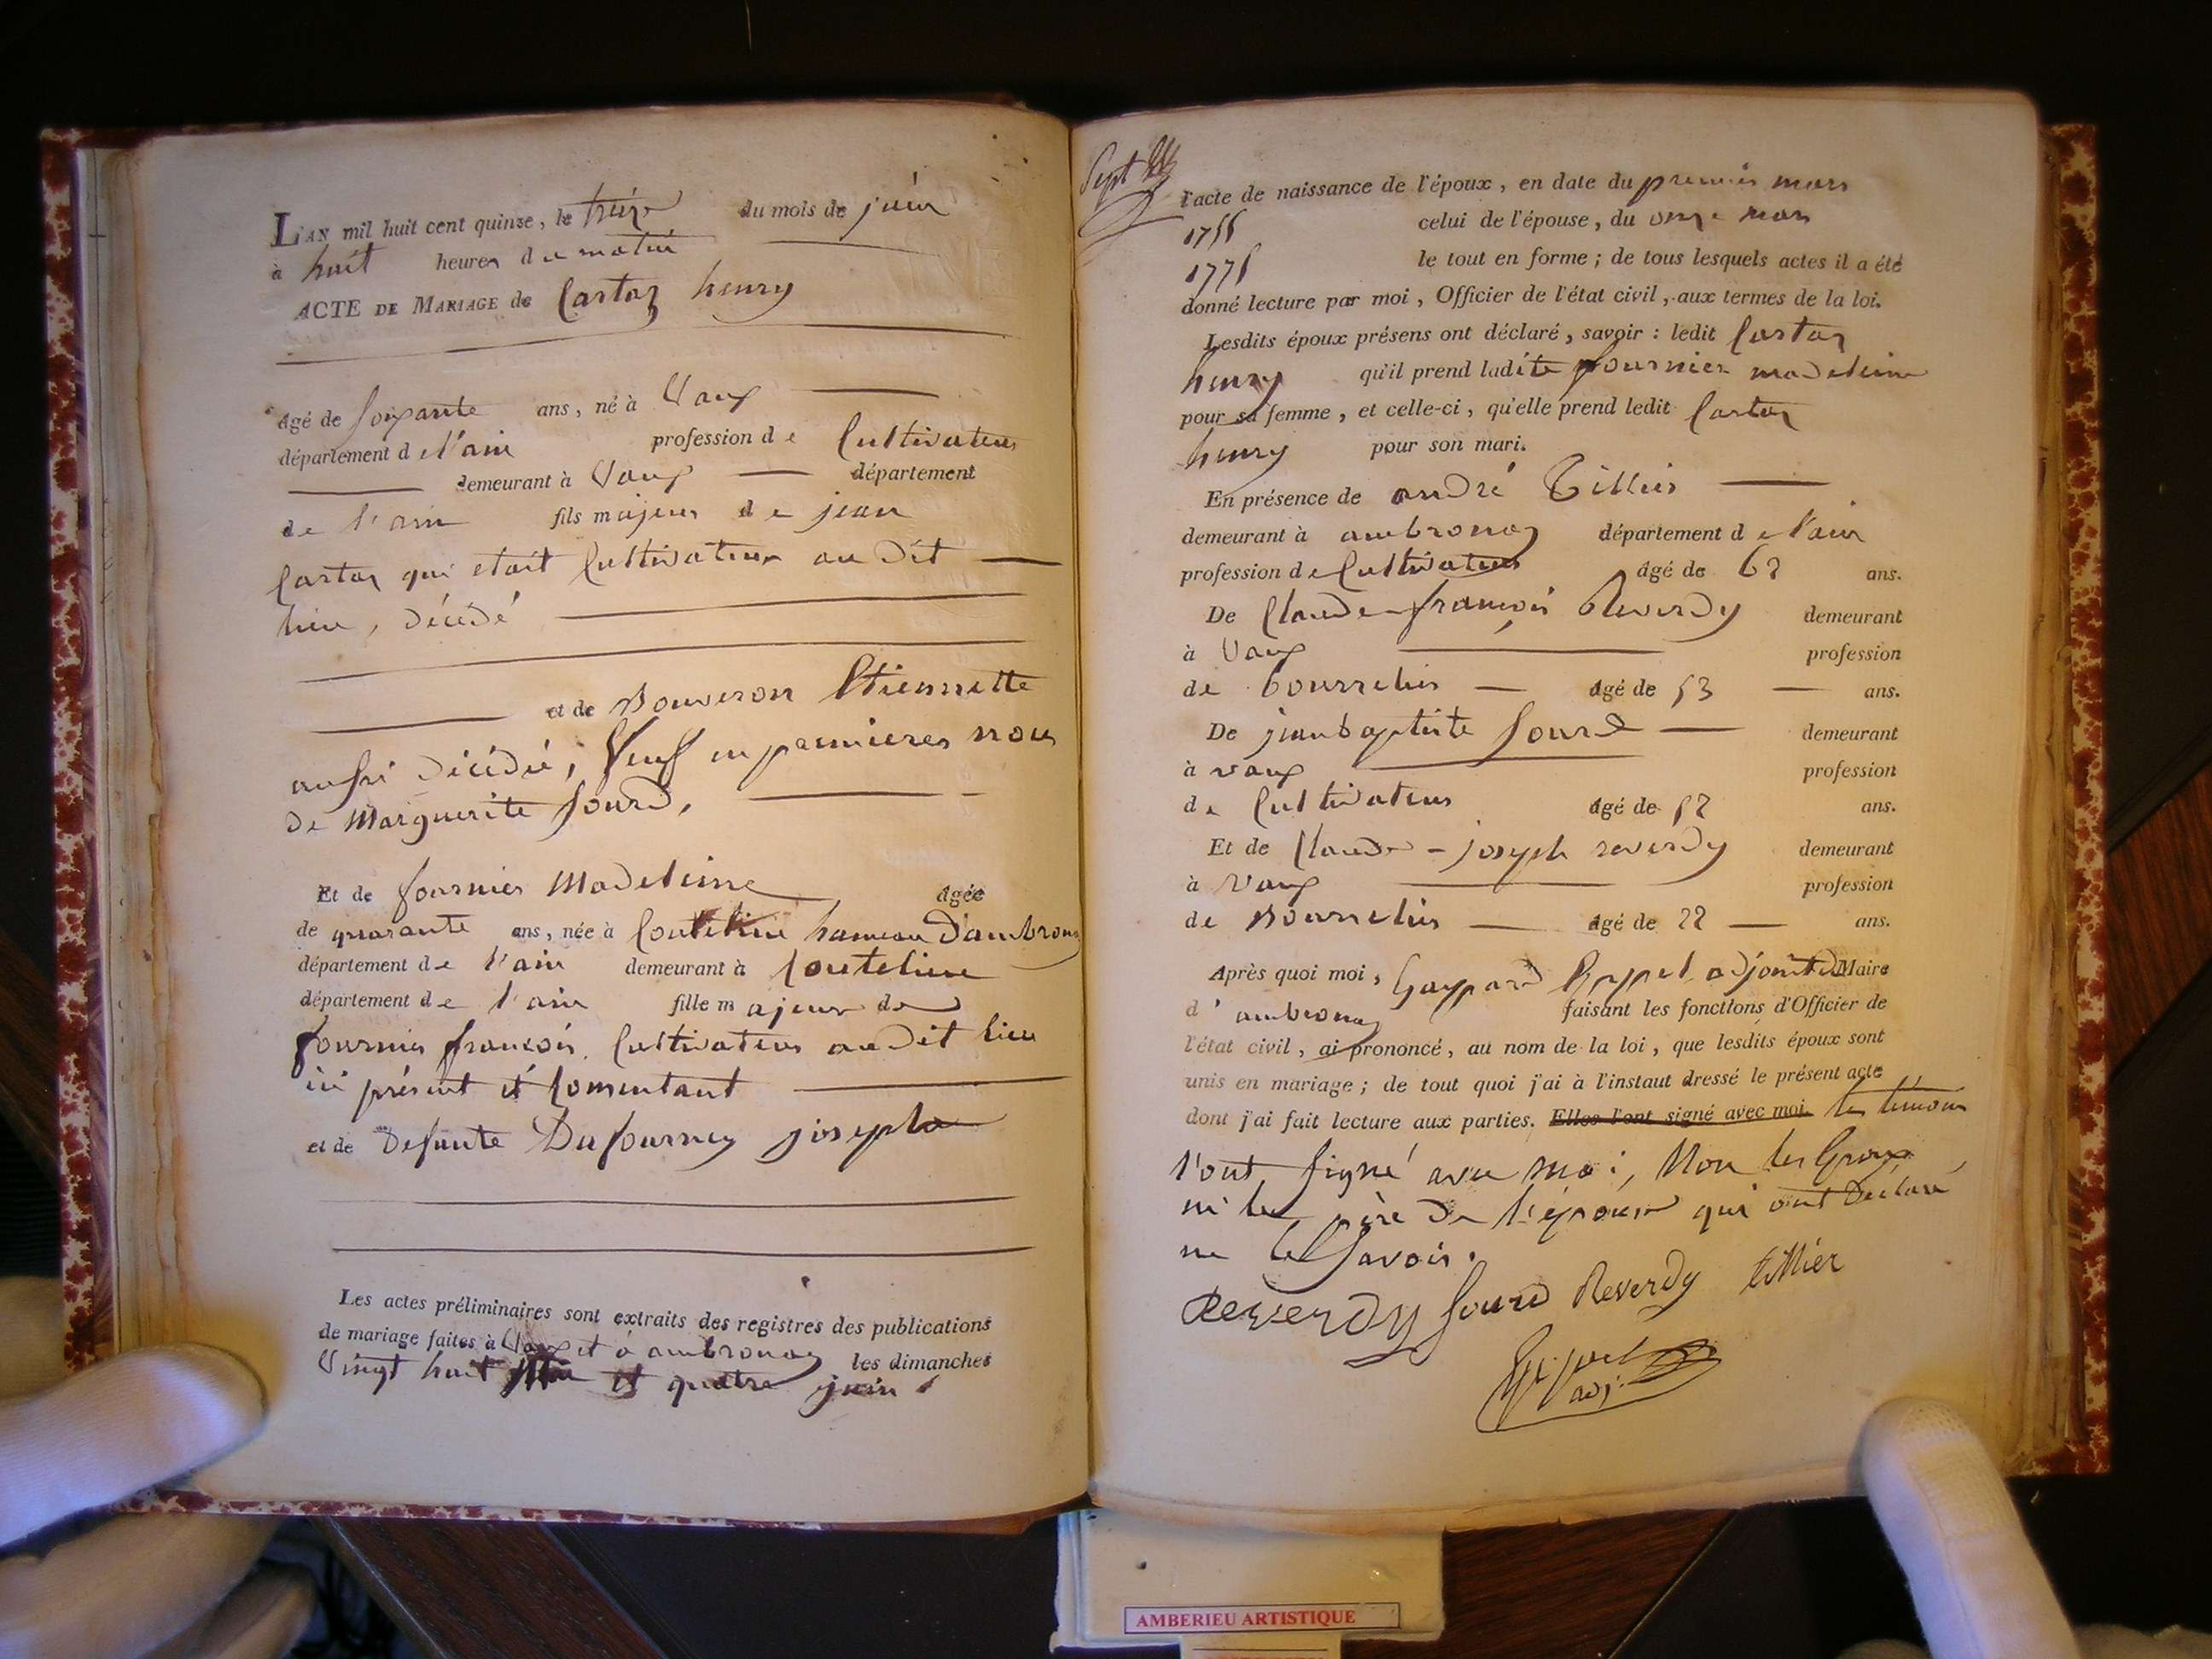 L'AN mil huit cent quinze, le treize du mois de juin
à huit heures du matin
ACTE DE MARIAGE de Cartaz henry
âgé de soixante ans, né à Vaux
département de l'ain profession de Cultivateur
demeurant à Vaux département
de l'ain fils majeur de jean
Cartaz qui etait Cultivateur au dit
lieu, décédé
et de Bouveron Etiennette
aussi décédée, Veuf en premieres noces
de Marguerite Sourd,
Et de fournier Madeleine âgée
de quarante ans, née à hameau D'ambronay
département de l'ain demeurant à Coutelieu
département de l'ain fille majeure de
fournier françois Cultivateur au dit lieu
ici présent et Consentant
et de Defunte Dufourney josephe
Les actes préliminaires sont extraits des registres des publications
de mariage faites à Vaux et à ambronay les dimanches
Vingt huit Mai et quatre juin
Sept
l'acte de naissance de l'époux, en date du premier mars
1755 celui de l'épouse, du onze mars
1775 le tout en forme ; de tous lesquels actes il a été
donné lecture par moi, Officier de l'état civil, aux termes de la loi.
Lesdits époux présens ont déclaré, savoir : ledit Cartaz
henry qu'il prend ladite fournier madeleine
pour sa femme, et celle-ci, qu'elle prend ledit Cartaz
henry pour son mari.
En présence de andré Tillier
demeurant à ambronay département de l'ain
profession de Cultivateur âgé de 62 ans.
De Claude françois Reverdy demeurant
à Vaux profession
de bourrelier âgé de 53 ans.
De jean baptiste Sourd demeurant
à vaux profession
de Cultivateur âgé de 52 ans.
Et de Claude-joseph reverdy demeurant
à Vaux profession
de Bourrelier âgé de 22 ans.
Après quoi moi, Gaspard adjoint du Maire
d'ambronay faisant les fonctions d'Officier de
l'état civil, ai prononcé, au nom de la loi, que lesdits époux sont
unis en mariage ; de tout quoi j'ai à l'instaut dressé le présent acte
dont j'ai fait lecture aux parties. Elles l'ont signé avec moi. les temoins
l'ont signé avec moi, Non les Epoux
ni le père de l'épouse qui ont Déclaré
ne le Savoir.
Reverdy Sourd Reverdy tillier
adj.
AMBERIEU ARTISTIQUE